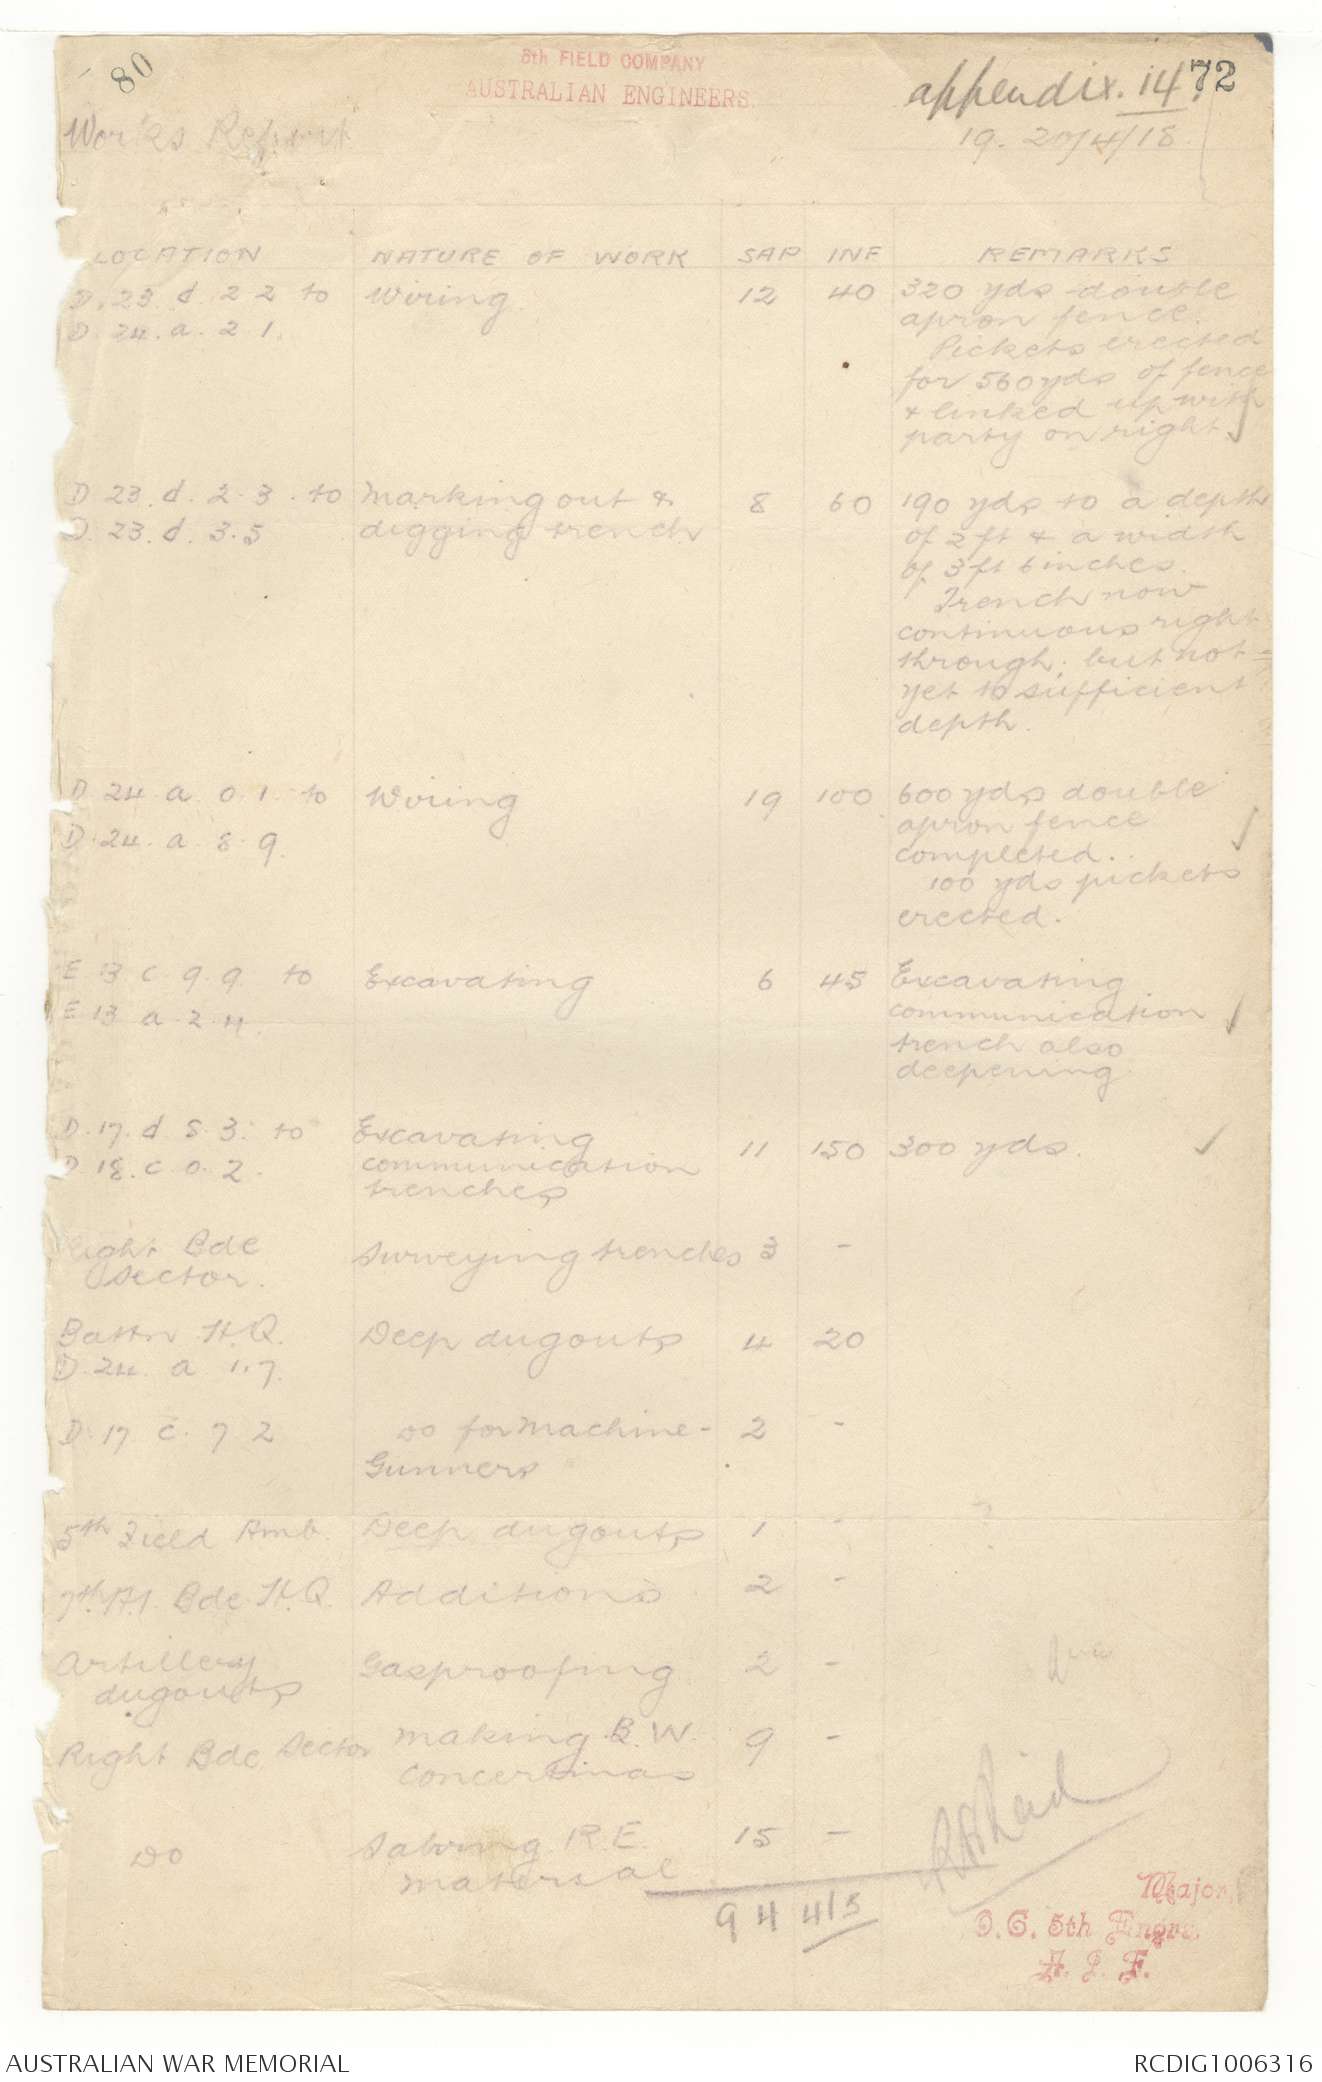 80
5th FIELD COMPANY
AUSTRALIAN ENGINEERS.
appendix. 14.
72
Works Report
19. 20/4/18
LOCATION NATURE OF WORK SAP INF REMARKS
D. 23. d. 2 2 to Wiring. 12 40 320 yds double
D. 24. a. 2 1. apron fence.
Pickets erected
for 560 yds of fence
& linked up with
party on right
D 23. d. 2. 3. to Marking out & 8 60 190 yds to a depth
D. 23. d. 3. 5 digging trench of 2 ft & a width
of 3 ft 6 inches.
Trench now
continuous right
through; but not
yet to sufficient
depth.
D. 24 a 0. 1. to Wiring 19 100 600 yds double
D. 24. a. 8. 9. apron fence
completed.
100 yds pickets
erected.
E 13 c. 9. 9 to Excavating 6 45 Excavating
E 13 a. 2. 4. communication
trench also
deepening
D. 17. d 8. 3. to Excavating 11 150 300 yds.
D. 18. c. 0. 2. communication
trenches
Right Bde Surveying trenches 3 -
Sector.
Battn H.Q. Deep dugouts 4 20
D. 24. a 1. 7.
D. 17 c. 7 2 do for Machine- 2 -
Gunners
5th Field Amb. Deep dugouts 1 -
7th A.I. Bde H.Q. Additions 2 -
Artillery Gasproofing 2 -
dugouts
Right Bde Sector making B.W. 9 -
concertinas
Do Salving R.E. 15 -
material
94 415
Major,
O.C. 5th Engrs.
A. I. F.
AUSTRALIAN WAR MEMORIAL
RCDIG1006316